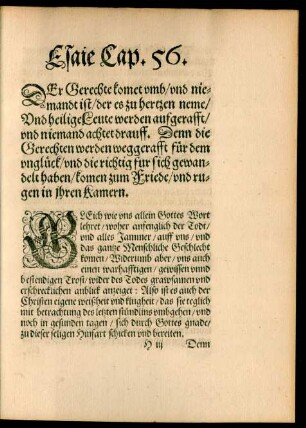 Esaie Cap. 56.
DEr Gerechte komet vmb/vnd nie-
mandt ist/der es zu hertzen neme/
Vnd heilige Leute werden auffgerafft/
vnd niemand achtet drauff. Denn die
Gerechten werden weggerafft für dem
vnglück/vnd die richtig fur sich gewan-
delt haben/komen zum Friede/vnd ru-
gen in jhren Kamern.
GLeich wie vns allein Gottes Wort
lehret/woher anfenglich der Todt/
vnd alles Jammer/auff vns/vnd
das gantze Menschliche Geschlecht
komen/Widerumb aber/vns auch
einen warhafftigen/gewissen vnnd
bestendigen Trost/wider des Todes grawsamen vnd
erschrecklichen anblick anzeiget: Also ist es auch der
Christen eigene weißheit vnd klugheit/das sie teglich
mit betrachtung des letzten stündlins vmbgehen/vnd
noch in gesunden tagen/sich durch Gottes gnade/
zu dieser seligen Hinfart schicken vnd bereiten.
H iij Denn